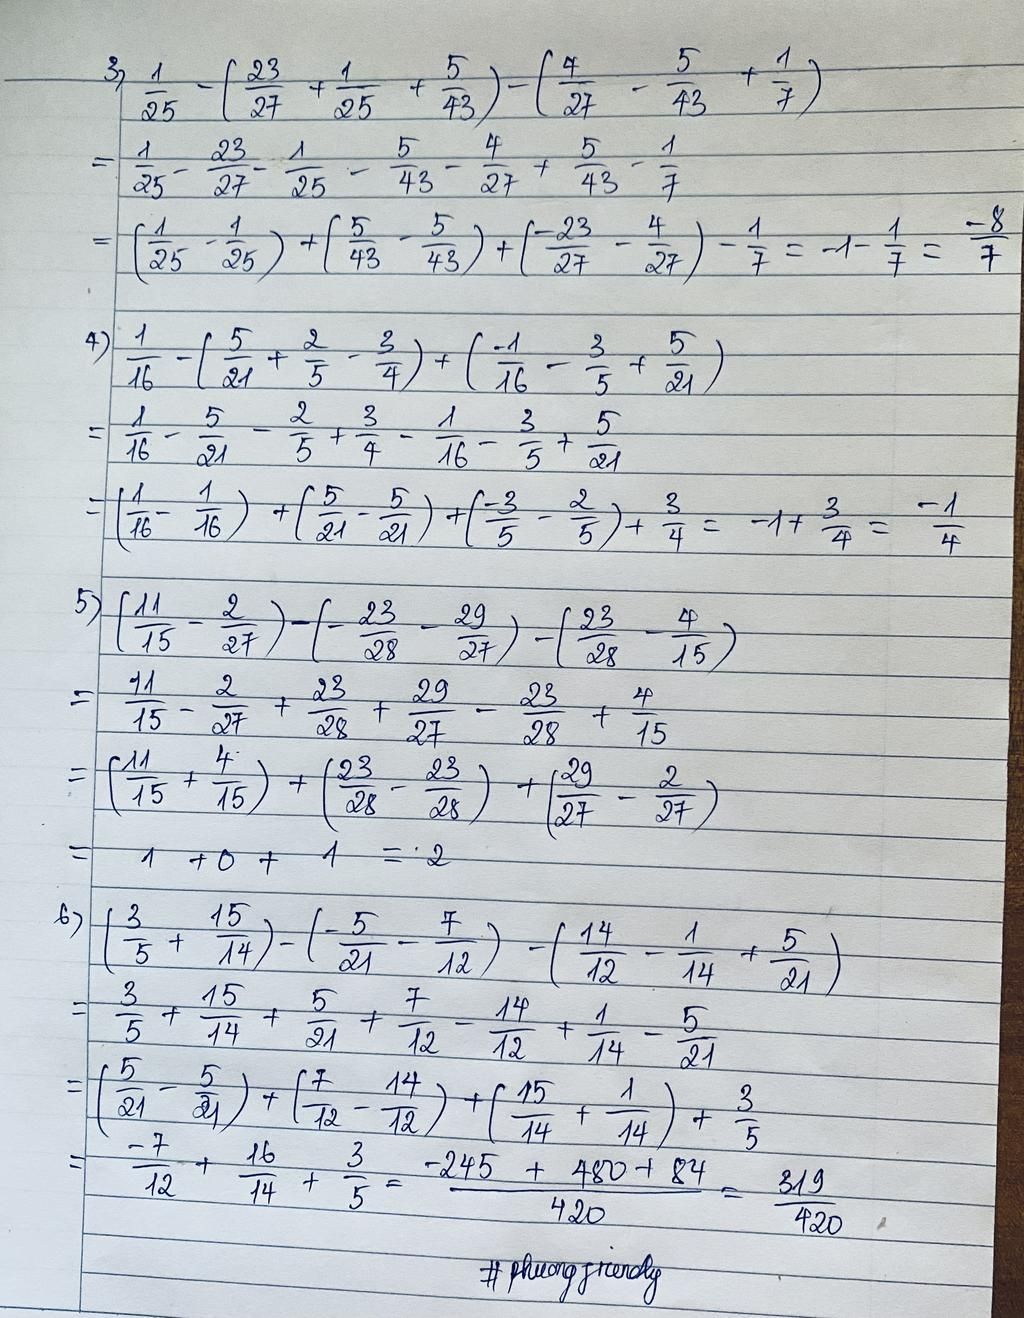 3) 1/25 - (23/27 + 1/25 + 5/43) - (4/27 - 5/43 + 1/7)
= 1/25 - 23/27 - 1/25 - 5/43 - 4/27 + 5/43 - 1/7
= (1/25 - 1/25) + (5/43 - 5/43) + (-23/27 - 4/27) - 1/7 = -1 - 1/7 = -8/7
4) 1/16 - (5/21 + 2/5 - 3/4) + (-1/16 - 3/5 + 5/21)
= 1/16 - 5/21 - 2/5 + 3/4 - 1/16 - 3/5 + 5/21
= (1/16 - 1/16) + (5/21 - 5/21) + (-3/5 - 2/5) + 3/4 = -1 + 3/4 = -1/4
5) (11/15 - 2/27) - (-23/28 - 29/27) - (23/28 - 4/15)
= 11/15 - 2/27 + 23/28 + 29/27 - 23/28 + 4/15
= (11/15 + 4/15) + (23/28 - 23/28) + (29/27 - 2/27)
= 1 + 0 + 1 = 2
6) (3/5 + 15/14) - (-5/21 - 7/12) - (14/12 - 1/14 + 5/21)
= 3/5 + 15/14 + 5/21 + 7/12 - 14/12 + 1/14 - 5/21
= (5/21 - 5/21) + (7/12 - 14/12) + (15/14 + 1/14) + 3/5
= -7/12 + 16/14 + 3/5 = (-245 + 480 + 84)/420 = 319/420
#phuongfriendly